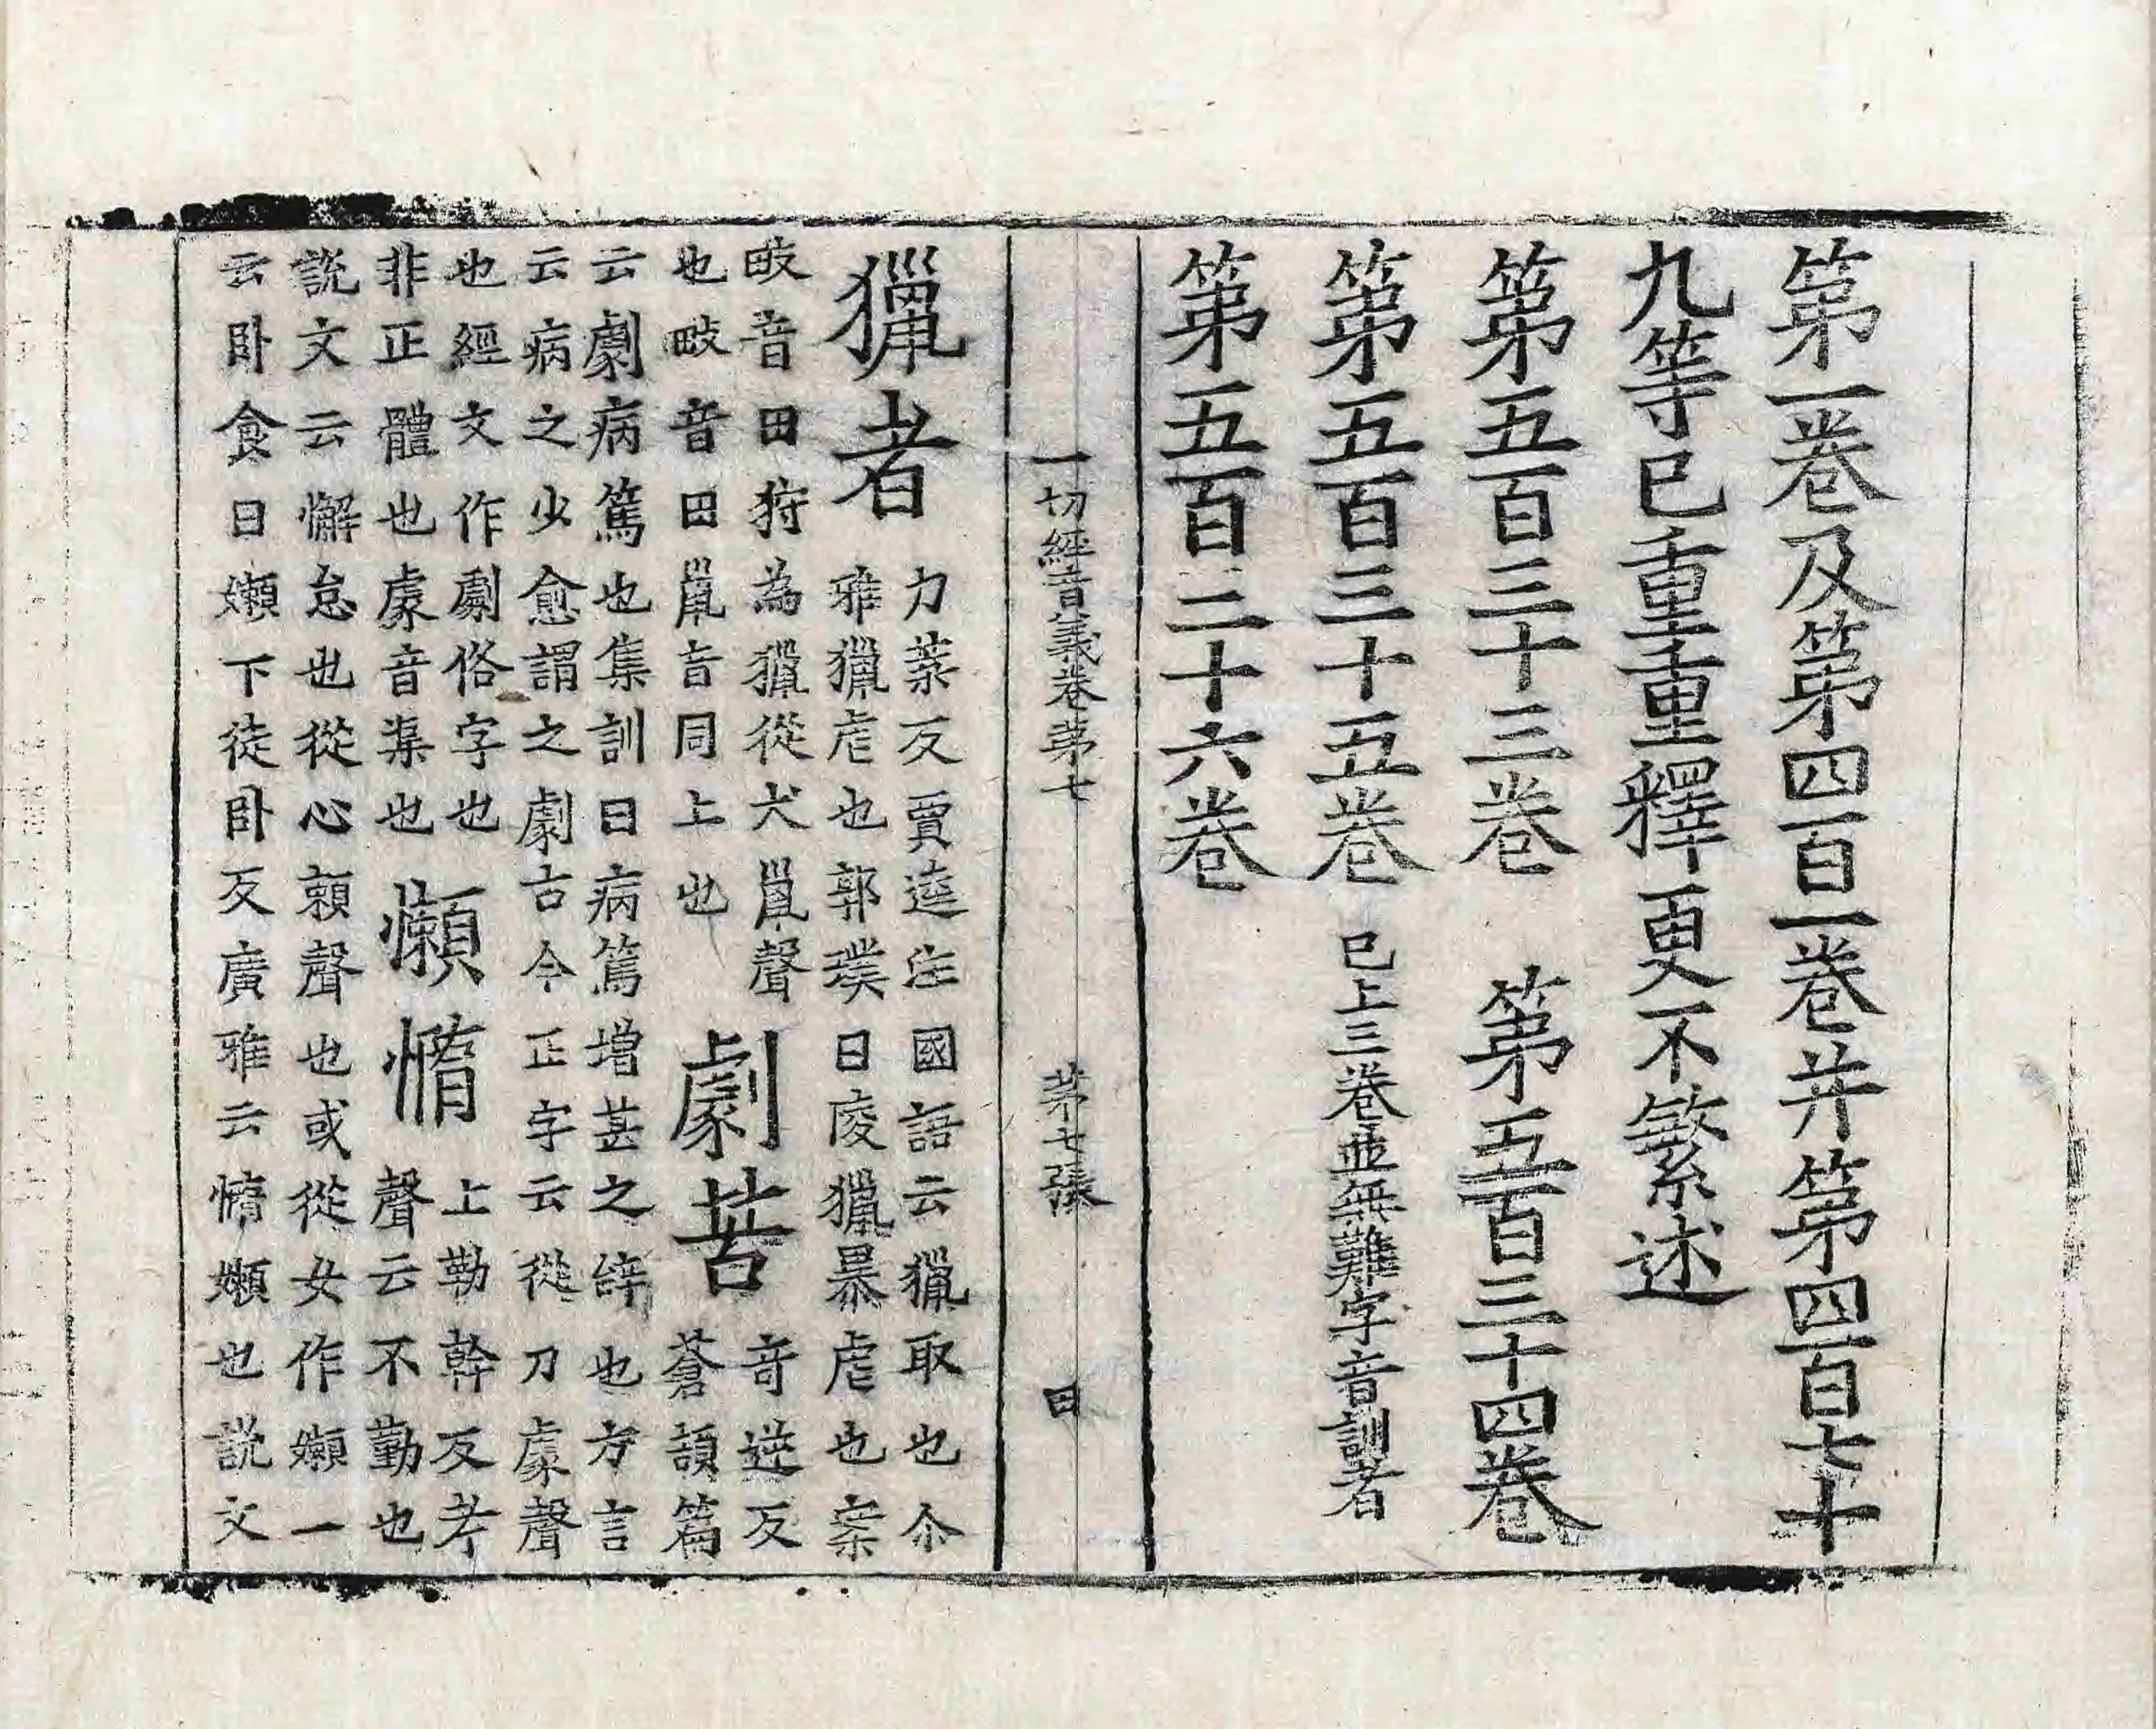 第一卷及第四百一卷并第四百七十
九等已重重釋更不繁述
第五百三十三卷　第五百三十四卷
第五百三十五卷　已上三卷並無難字音訓者
第五百三十六卷
一切經音義卷第七　第七張　田
獵者　力葉反賈逵注國語云獵取也尒
雅獵虐也郭璞曰㥄獵暴虐也案
畋音田狩為獵從犬巤聲　劇苦　竒逆反
也畋音田巤音同上也　蒼頡篇
云劇病篤也集訓曰病篤增甚之辝也方言
云病之少愈謂之劇古今正字云從刀豦聲
也經文作劇俗字也　懶惰　上勒幹反考
非正體也豦音渠也　聲云不勤也
說文云懈怠也從心賴聲也或從女作嬾一
云卧食曰嬾下徒卧反廣雅云惰嬾也說文